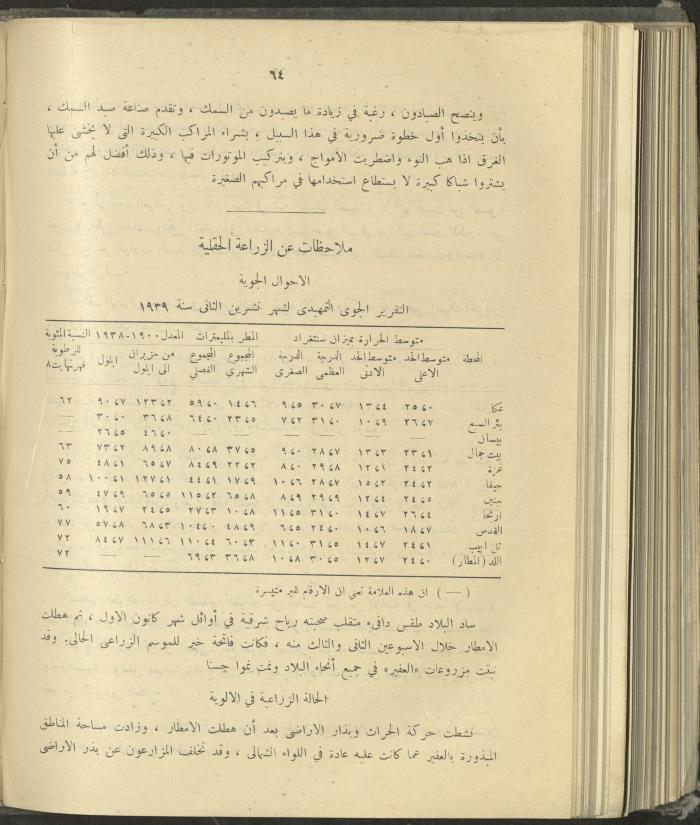 ٦٤
وينصح الصيادون ، رغبة في زيادة ما يصيدون من السمك ، وتقدم صناعة صيد السمك ،
بأن يتخذوا أول خطوة ضرورية في هذا السبيل ، بشراء المراكب الكبيرة التى لا يخشى عليها
الغرق اذا هب النوء واضطربت الأمواج ، وبتركيب الموتورات فيها ، وذلك أفضل لهم من أن
يشتروا شباكا كبيرة لا يستطاع استخدامها في مراكبهم الصغيرة
ملاحظات عن الزراعة الحقلية
الاحوال الجوية
التقرير الجوى التمهيدى لشهر تشرين الثانى سنة ١٩٣٩
متوسط الحرارة بميزان سنتغراد المطر بالمليمترات المعدل ١٩٠٠-١٩٣٨ النسبة المئوية
المحطة متوسط الحد متوسط الحد الدرجة الدرجة المجموع المجموع من حزيران ايلول للرطوبة
الاعلى الادنى العظمى الصغرى الشهري الفصلي الى ايلول
عكا ٢٥٫٠ ١٣٫٤ ٣٠٫٧ ٩٫٥ ١٤٫٦ ٥٩٫٠ ١٢٣٫٢ ٩٠٫٧ ٦٢
بئر السبع ٢٦٫٧ ١٠٫٩ ٣١٫٠ ٧٫٢ ٢٣٫٥ ٦٤٫٠ ٣٦٫٨ ٣٠٫٠ —
بيسان — — — — — — ٤٦٫٠ ٢٦٫٥ —
بيت جمال ٢٣٫١ ١٣٫٣ ٢٨٫٧ ٩٫٠ ٣٧٫٥ ٨٠٫٨ ٨٩٫٨ ٧٣٫٢ ٦٣
غزة ٢٤٫٢ ١٢٫١ ٢٩٫٨ ٨٫٠ ٢٢٫٢ ٨٤٫٩ ٦٥٫٧ ٤٨٫١ ٧٥
حيفا ٢٤٫٢ ١٥٫٢ ٢٨٫٧ ١٠٫٦ ١٧٫٩ ٤٤٫١ ١٢٧٫١ ١٠٠٫١ ٥٨
جنين ٢٤٫٥ ١٢٫٤ ٢٩٫٩ ٨٫٩ ٦٥٫٨ ١١٥٫٢ ٦٥٫٥ ٤٧٫٩ ٥٩
اريحا ٢٦٫٤ ١٤٫٧ ٣١٫٥ ١١٫٥ ١٠٫٨ ٢٧٫٣ ٢٤٫٥ ١٩٫٧ ٦٠
القدس ١٨٫٧ ١٠٫٦ ٢٤٫٥ ٦٫٥ ٤٨٫٩ ١٠٤٫٠ ٦٨٫٣ ٥٧٫٨ ٧٧
تل ابيب ٢٤٫١ ١٤٫٧ ٣١٫٥ ١١٫٠ ٦٠٫٣ ١١٠٫٤ ١١١٫٦ ٨٤٫٧ ٧٢
اللد (المطار) ٢٤٫٠ ١٢٫٧ ٣٠٫٥ ١٠٫٨ ٣٦٫٨ ٦٩٫٣ — — ٧٢
( — ) ان هذه العلامة تعني ان الارقام غير متيسرة
ساد البلاد طقس دافىء متقلب صحبته رياح شرقية في أوائل شهر كانون الاول ، ثم هطلت
الامطار خلال الاسبوعين الثانى والثالث منه ، فكانت فاتحة خير للموسم الزراعى الحالى. وقد
نبتت مزروعات «العفير» في جميع أنحاء البلاد ونمت نموا حسنا
الحالة الزراعية في الالوية
نشطت حركة الحراث وبذار الاراضى بعد أن هطلت الامطار ، وزادت مساحة المناطق
المبذورة بالعفير عما كانت عليه عادة في اللواء الشمالى ، وقد تخلف المزارعون عن بذر الاراضى